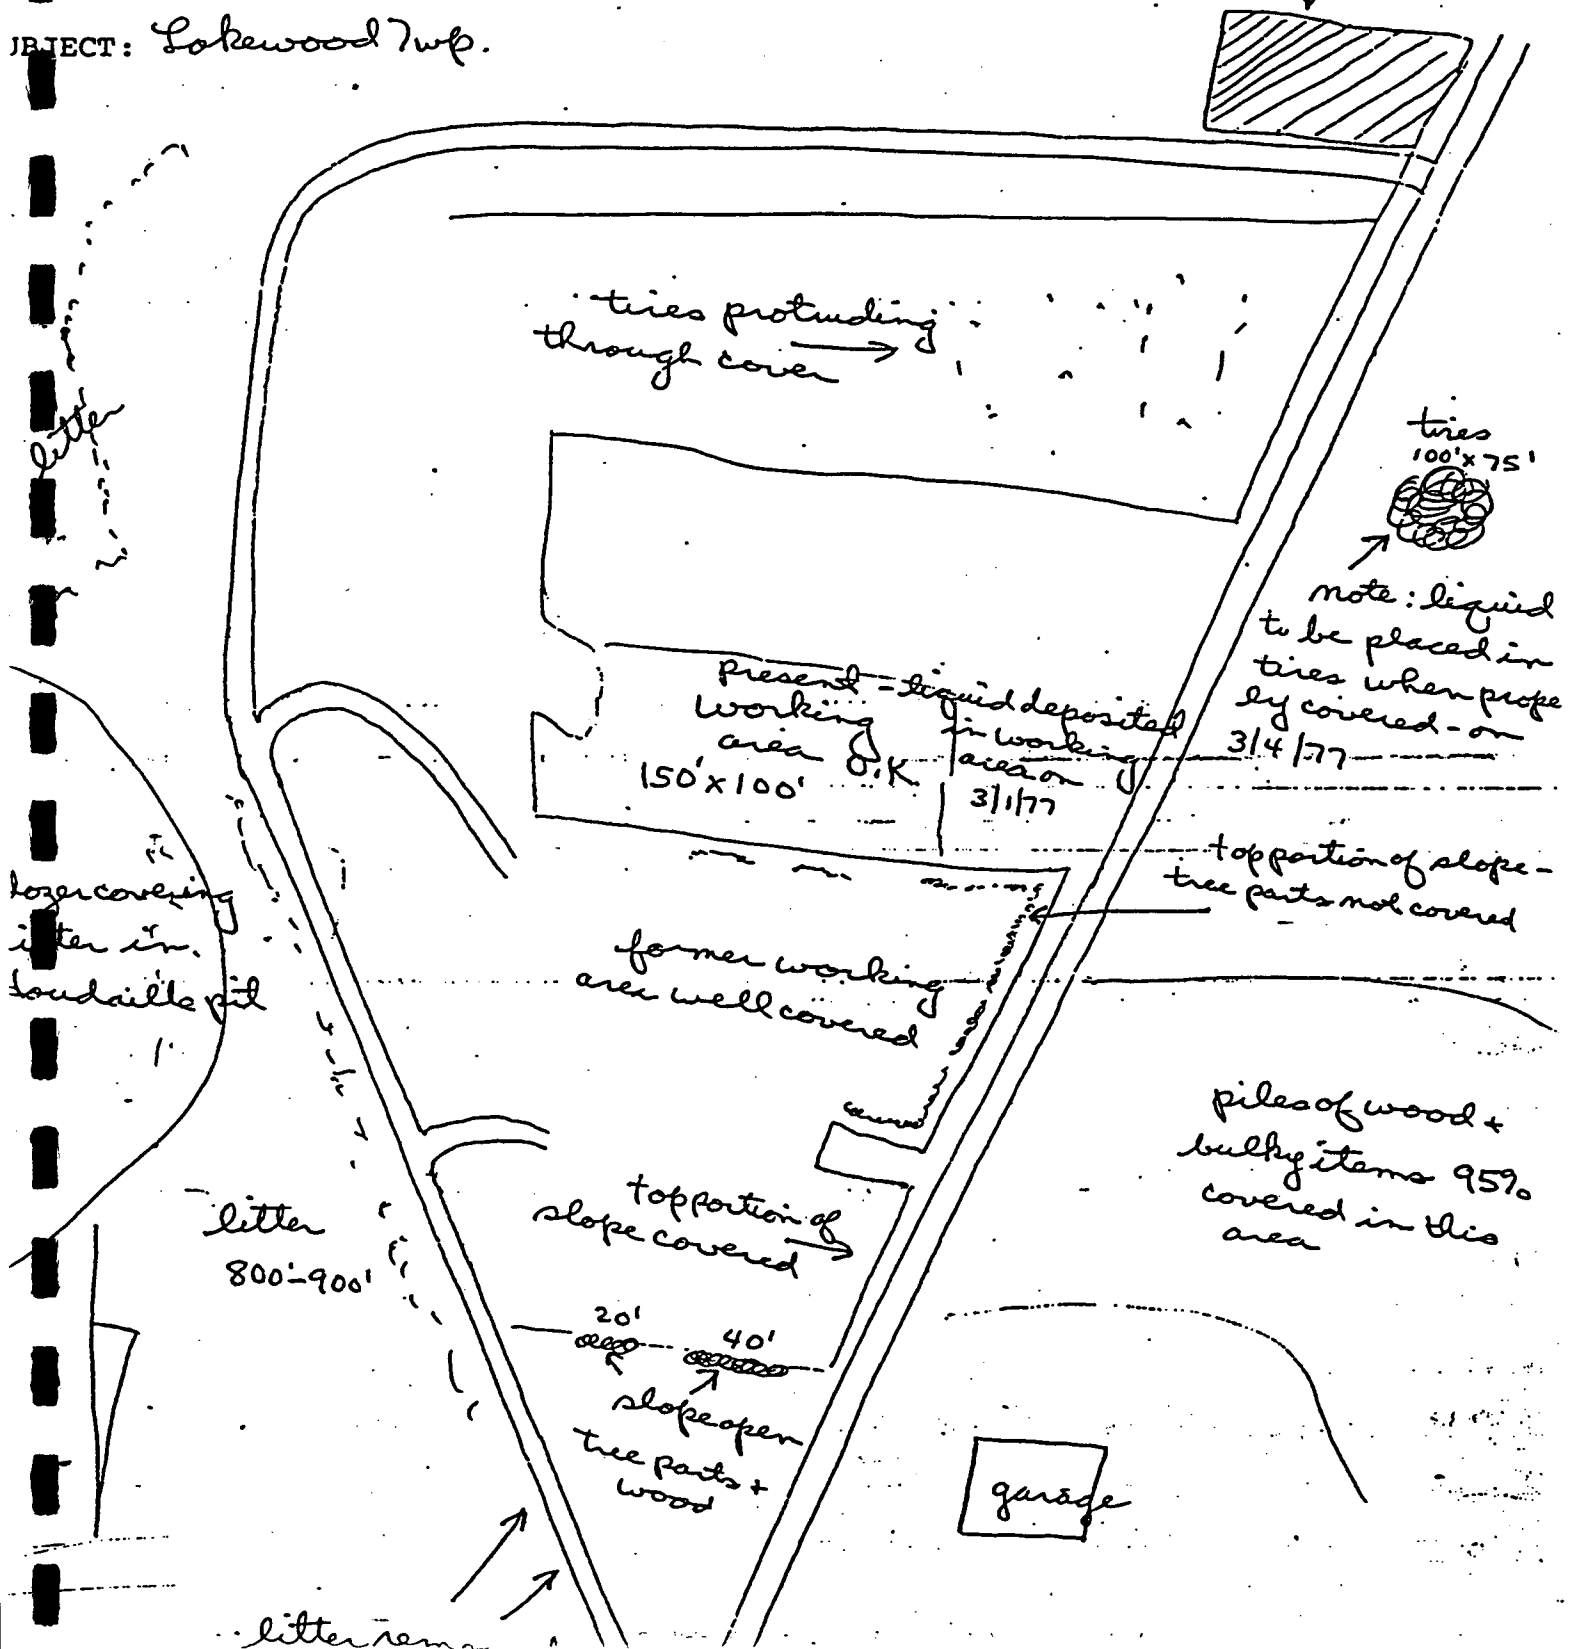 JBJECT: Lakewood Twp.
tires protruding
through cover
litter
tires
100'x75'
note: liquid
to be placed in
tires when prope
ly covered - on
3/4/77
present
working
area
O.K.
150'x100'
- liquid deposited
in working
area on
3/1/77
top portion of slope -
tree parts not covered
dozer covering
litter in
Houdaille pit
former working
area well covered
piles of wood +
bulky items 95%
covered in this
area
litter
800'-900'
top portion of
slope covered
20'
40'
slope open
tree parts +
wood
garage
litter rem